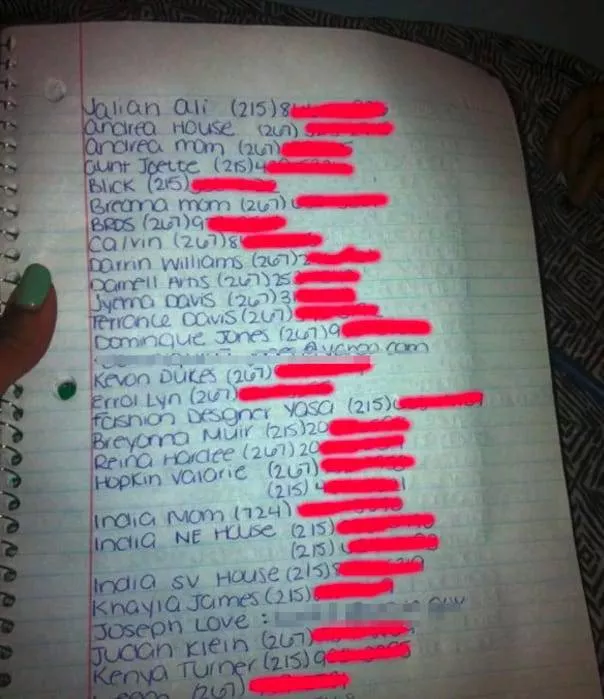 Jalian Ali (215)8
Andrea House (267)
Andrea mom (267)
Aunt Joette (215)4
Blick (215)
Breanna mom (267)
BROS (267)9
Calvin (267)8
Darrin Williams (267)2
Darnell Arns (267)25
Jyema Davis (267)3
Terrance Davis (267)
Dominque Jones (267)9
@yahoo.com
Kevon Dukes (267)
Errol Lyn (267)
Fashion Designer Yasa (215)
Breyanna Muir (215)20
Reina Hardee (267)20
Hopkin Valarie (267)
(215)
India Mom (724)
India NE House (215)
(215)
India SV House (215)
Khayla James (215)
Joseph Love:
Judan Klein (267)
Kenya Turner (215)9
(267)